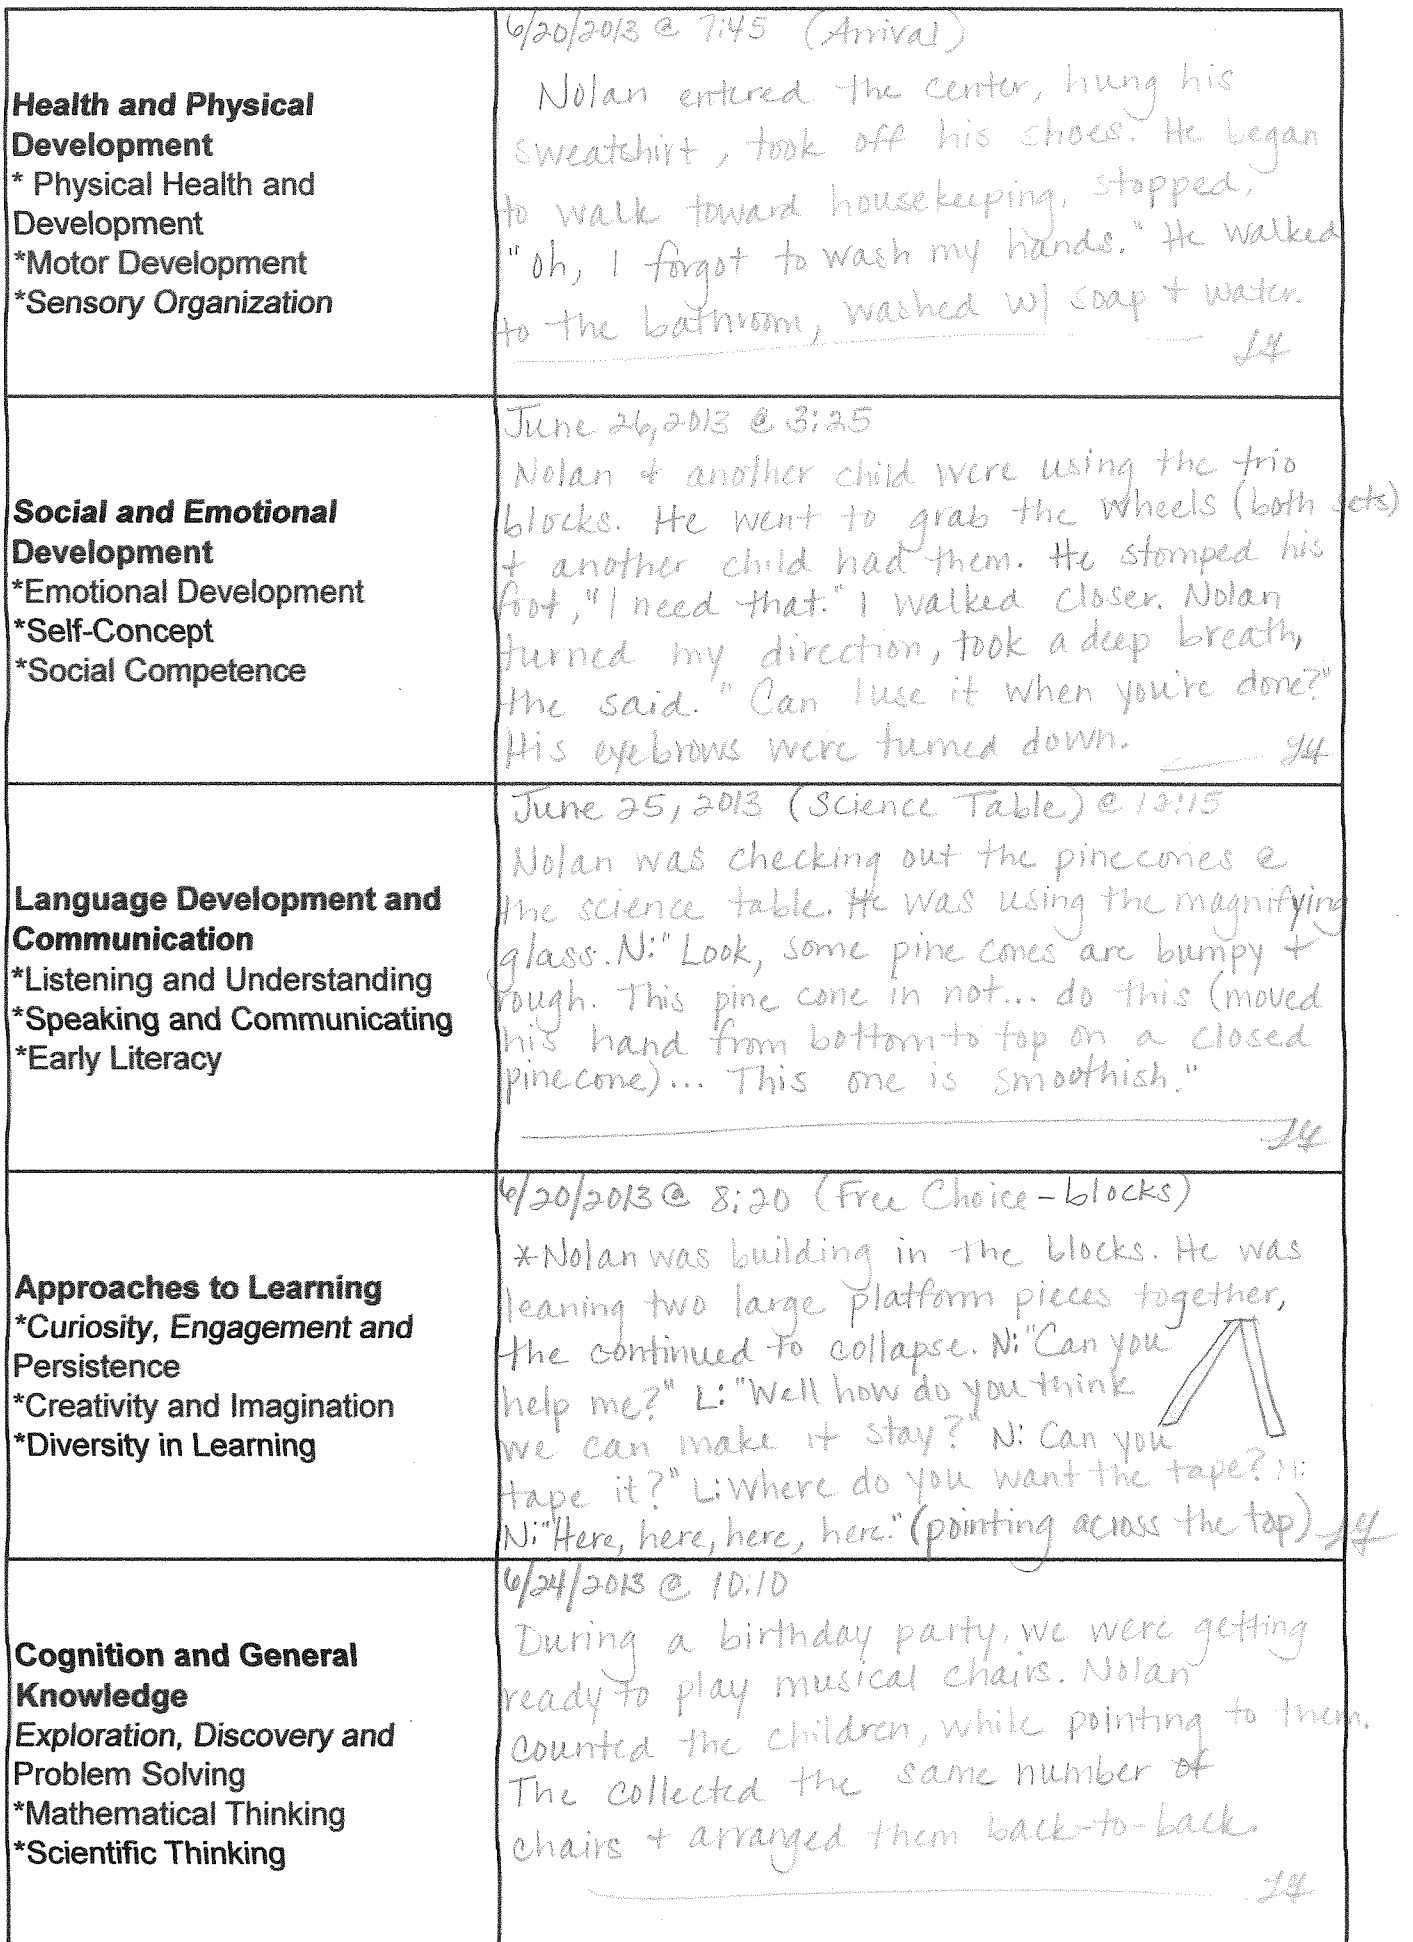 Health and Physical
Development
* Physical Health and
Development
*Motor Development
*Sensory Organization
6/20/2013 @ 7:45 (Arrival)
Nolan entered the center, hung his
sweatshirt, took off his shoes. He began
to walk toward housekeeping, stopped,
"Oh, I forgot to wash my hands." He walked
to the bathroom, washed w/ soap + water.
Social and Emotional
Development
*Emotional Development
*Self-Concept
*Social Competence
June 26, 2013 @ 3:25
Nolan + another child were using the trio
blocks. He went to grab the wheels (both sets)
+ another child had them. He stomped his
foot, "I need that." I walked closer. Nolan
turned my direction, took a deep breath,
the said. "Can I use it when you're done?"
His eyebrows were turned down.
Language Development and
Communication
*Listening and Understanding
*Speaking and Communicating
*Early Literacy
June 25, 2013 (Science Table) @ 12:15
Nolan was checking out the pinecones @
the science table. He was using the magnifying
glass. N: "Look, some pine cones are bumpy +
rough. This pine cone in not... do this (moved
his hand from bottom to top on a closed
pinecone)... This one is smoothish."
Approaches to Learning
*Curiosity, Engagement and
Persistence
*Creativity and Imagination
*Diversity in Learning
6/20/2013 @ 8:20 (Free Choice - blocks)
*Nolan was building in the blocks. He was
leaning two large platform pieces together,
the continued to collapse. N: "Can you
help me?" L: "Well how do you think
we can make it stay?" N: Can you
tape it?" L: Where do you want the tape? N:
N: "Here, here, here, here." (pointing across the top)
Cognition and General
Knowledge
Exploration, Discovery and
Problem Solving
*Mathematical Thinking
*Scientific Thinking
6/24/2013 @ 10:10
During a birthday party, we were getting
ready to play musical chairs. Nolan
counted the children, while pointing to them.
The collected the same number of
chairs + arranged them back-to-back.